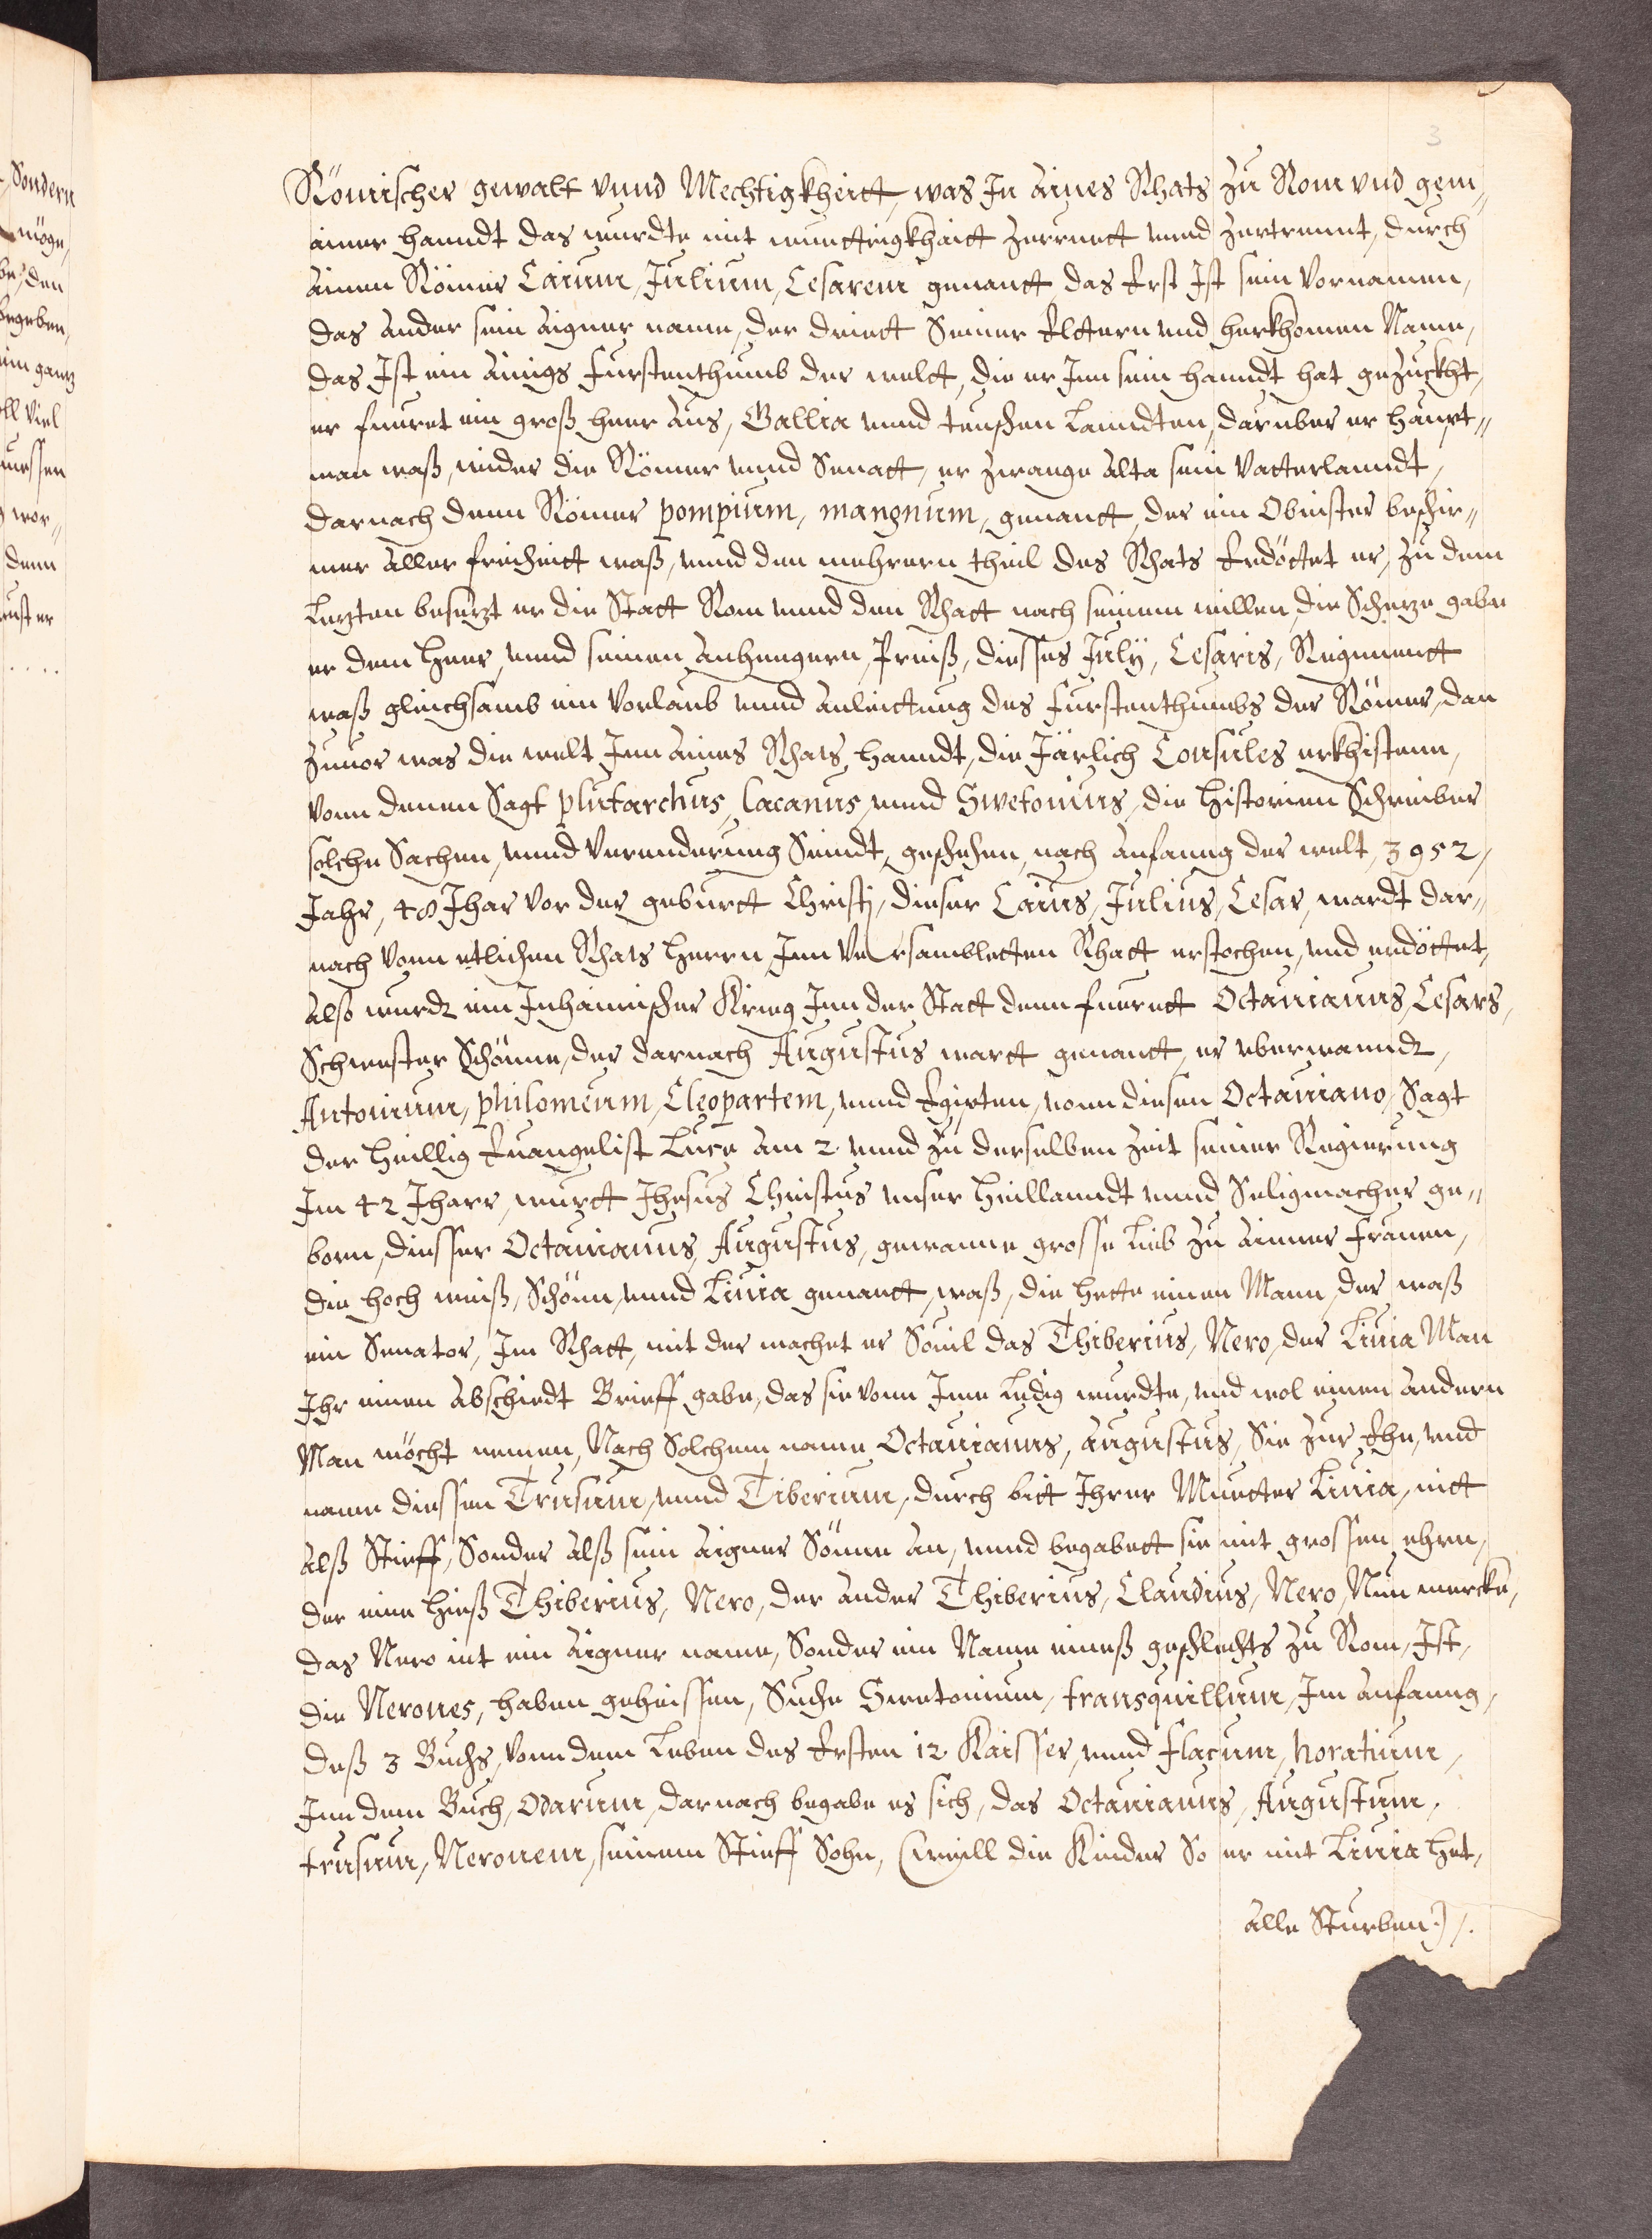 3
Römischer gewalt vnnd Mechtigkheitt, was In aines Rhats zu Rom vnd gem„
ainer hanndt das wurdte mit wuettrigkhaitt zerruett vnnd zertrennt, durch
ainen Römer Caium, Julium, Cesarem genantt, das Erst Ist sein Vornamen,
das ander sein aigner name, der dritt Seiner Elttern vnd herkhomen Name,
das Ist ein ainigs Furstenthumb der weltt, die er Inn sein hanndt hat gezuckht,
er fueret ein groß heer aus, Gallia vnnd teuschen Lanndten, daruber er haupt„
man waß, wider die Römer vnnd Senatt, er zwange alta sein Vatterlanndt,
darnach denn Römer pompium, mangnum, genantt, der ein Obrister beschir„
mer aller freiheitt waß, vnnd den mehrern theil des Rhats Erdöttet er, zu dem
Lezten besezt er die Statt Rom vnnd den Rhatt nach seinem willen, die Scheze gabe
er dem heer, vnnd seinen anhengern, Preiß, diesses July, Cesaris, Regimentt
waß gleichsamb ein Vorlaub vnnd anleittung des Furstenthumbs der Römer, dan
zuuor was die welt Inn aines Rhats hanndt, die Järlich Consules erkhisenn,
vonn denen Sagt plutarchus, Lacanus, vnnd Swetonius, die Historien Schreiber
solche Sachen, vnnd Verenderung Seindt, geschehen, nach anfanng der welt, 3952,
Jahr, 48 Jhar vor der geburtt Christj, dieser Caius, Julius, Cesar, wardt dar„
nach vonn etlichen Rhats herrn Inn Versambletten Rhatt erstochen, vnd erdöttet,
also wurdt ein Inhaimischer Krieg Inn der Statt denn fuerett Octauianus, Cesars,
Schwester Söhnne, der darnach Augustus wartt genantt, er vberwanndt,
Antonium, philomeum, Cleopartem, vnnd Egipten, vonn diesen Octauiano, Sagt
der Heillig Euangelist Luce am 2. vnnd zu derselben zeit seiner Regierung
Im 42 Jharr, wurtt Jhesus Christus vnser Heillanndt vnnd Seligmacher ge„
born, diesser Octauianus, Augustus, gewanne grosse Lieb zu ainer Frauen,
die hoch weiß, Schönn, vnnd Liuia genantt, waß, die hette einen Mann, der waß
ein Senator, Im Rhatt, mit der machet er Souil das Thiberius, Nero, der Liuia Man
Ihr einen abschiedt Brieff gabe, das sie vonn Imme Ledig wurdte, vnd wol einen andern
Man möcht nemen, Nach Solchem name Octauianus, augustus, Sie zur Ehe, vnd
name diessen Trusum, vnnd Tiberium, durch bitt Ihrer Muetter Liuia, nitt
alß Stieff, Sonder alß sein aigner Sönne an, vnnd begabett sie mit grossen ehren,
der eine hieß Thiberius, Nero, der ander Thiberius, Claudius, Nero, Nun mercke,
das Nero nit ein aigner name, Sonder ein Name eineß geschlechts zu Rom, Ist,
die Nerones, haben geheissen, Suche Swetonium, transquillum, Im anfanng,
deß 3 Buchs, vonn dem Leben des Ersten 12. Kaisser, vnnd Flacum, horatium,
Inn dem Buch, Odarum, darnach begabe es sich, das Octauianus, Augustum,
trusum, Neronem, seinem Stieff Sohn, (weill die Kinder So er mit Liuia het,
alle Sturben.) /.